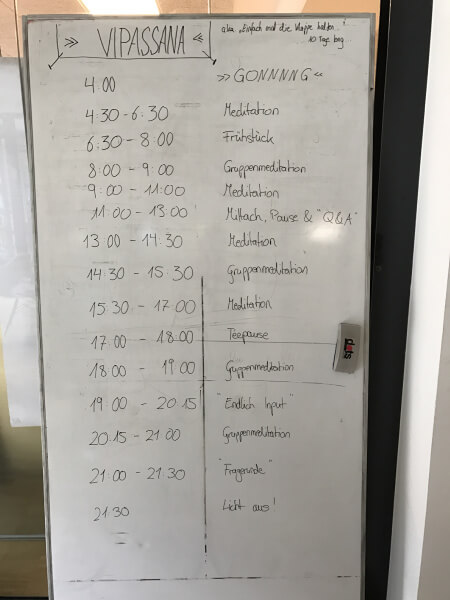 » VIPASSANA «
aka „Einfach mal die Klappe halten"
10 Tage lang
4:00 »GONNNNG«
4:30 - 6:30 Meditation
6:30 - 8:00 Frühstück
8:00 - 9:00 Gruppenmeditation
9:00 - 11:00 Meditation
11:00 - 13:00 Mittach, Pause & "Q&A"
13:00 - 14:30 Meditation
14:30 - 15:30 Gruppenmeditation
15:30 - 17:00 Meditation
17:00 - 18:00 Teepause
18:00 - 19:00 Gruppenmeditation
19:00 - 20:15 "Endlich Input"
20:15 - 21:00 Gruppenmeditation
21:00 - 21:30 "Fragerunde"
21:30 Licht aus!